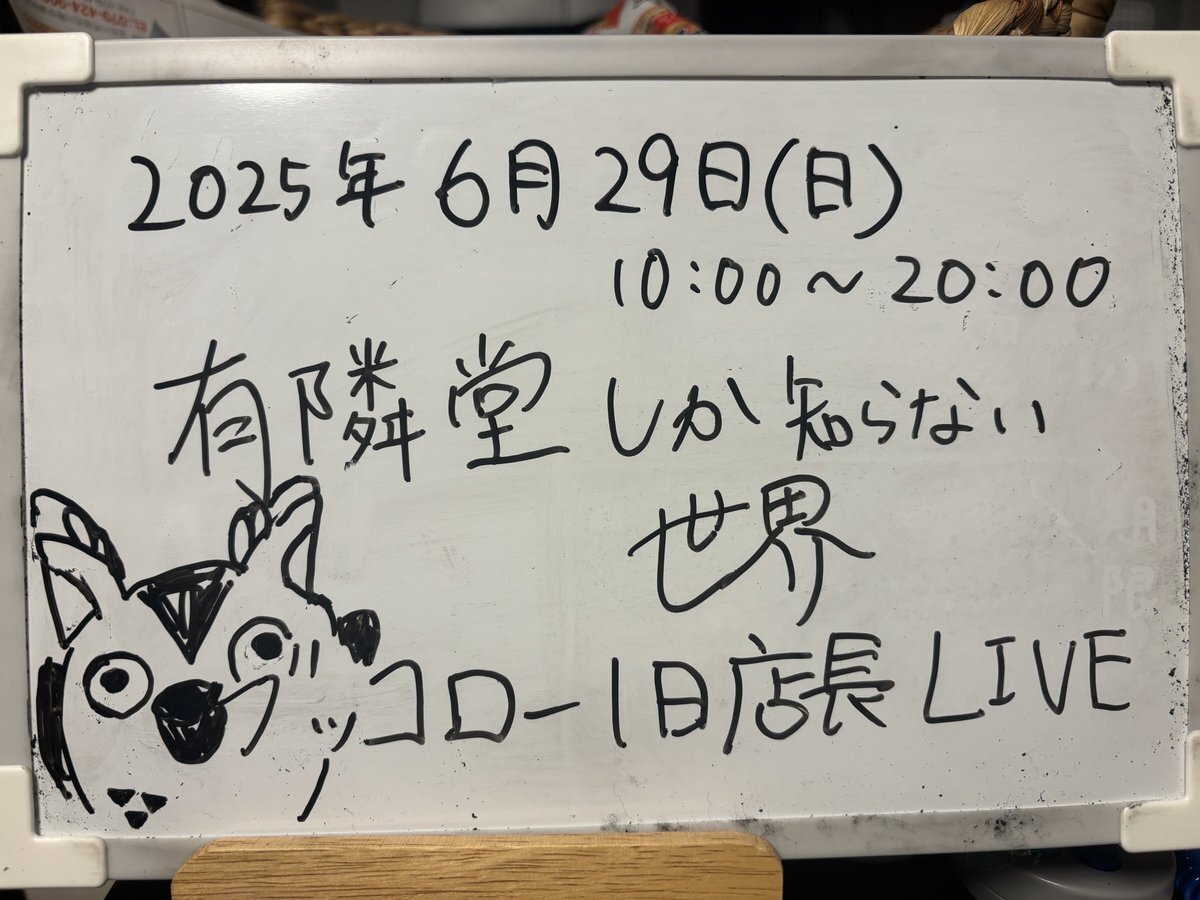 2025年6月29日(日)
10:00~20:00
有隣堂しか知らない
世界
ブッコロー1日店長LIVE